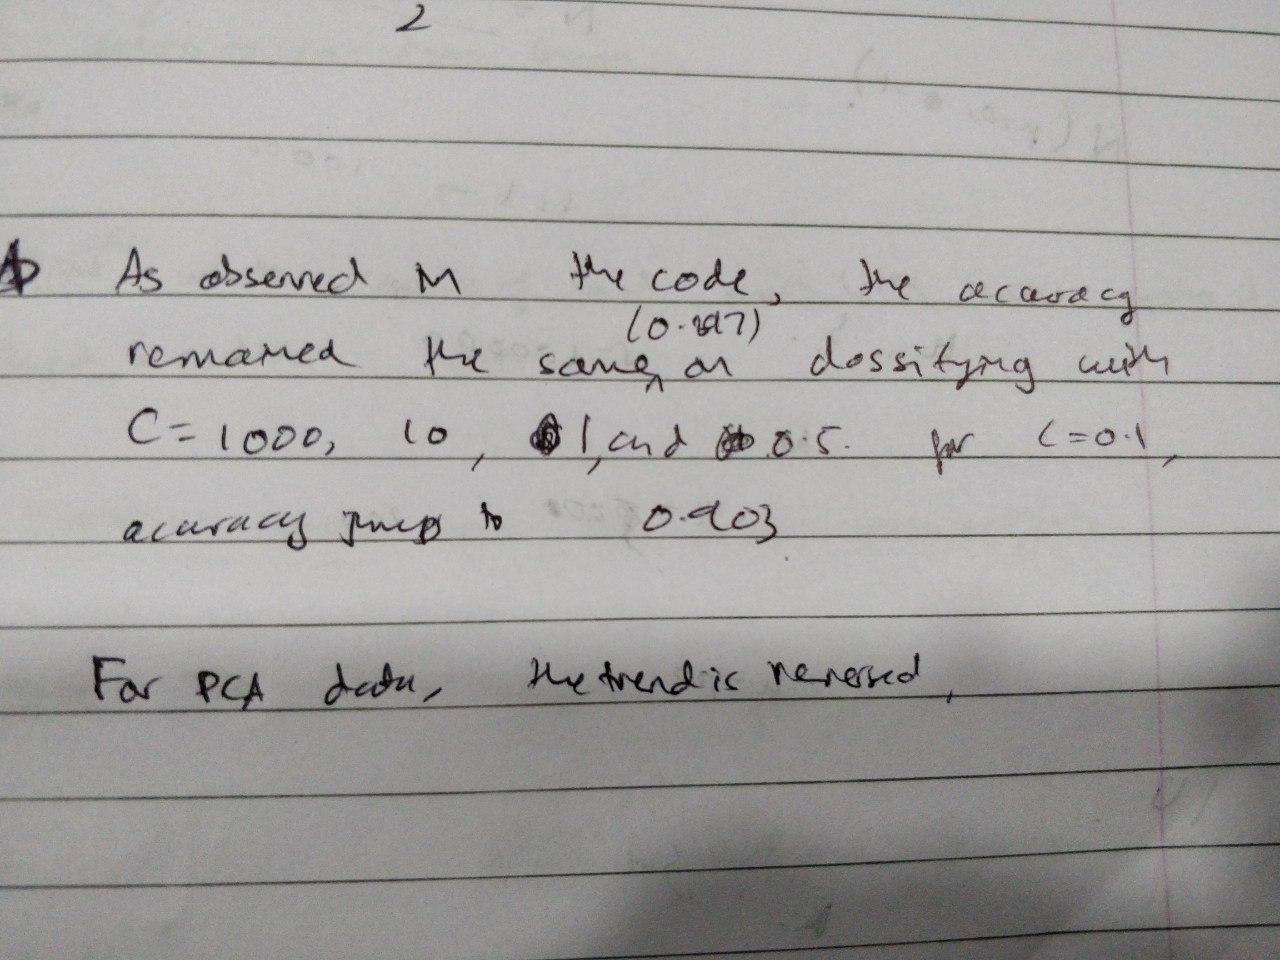 2
As observed in the code, the accuracy
remained the same, on classifying with
C=1000, 10, 1, and 0.5. for C=0.1,
accuracy jump to 0.903
For PCA data, the trend is reversed,